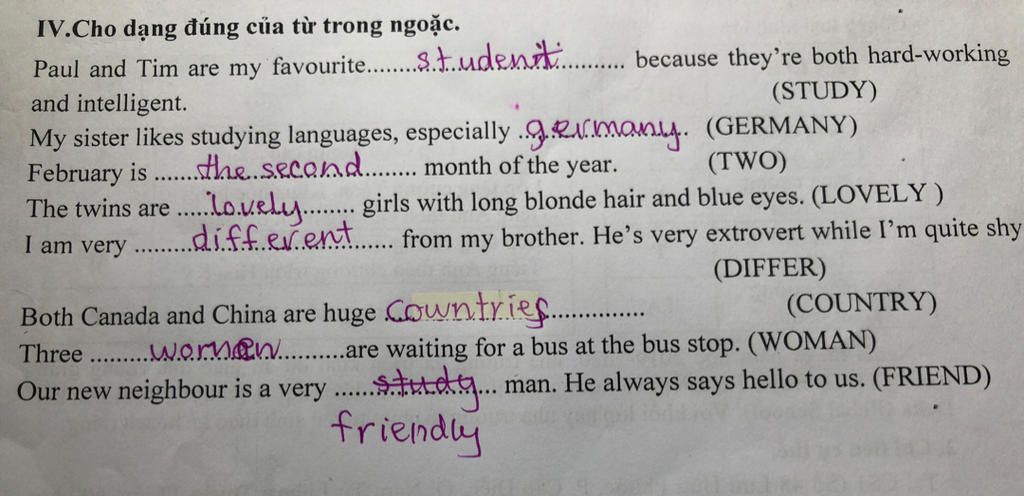 IV.Cho dạng đúng của từ trong ngoặc.
Paul and Tim are my favourite........student........... because they're both hard-working
and intelligent. (STUDY)
My sister likes studying languages, especially ..germany.. (GERMANY)
February is .......the second........ month of the year. (TWO)
The twins are .....lovely........ girls with long blonde hair and blue eyes. (LOVELY )
I am very .........different...... from my brother. He's very extrovert while I'm quite shy
(DIFFER)
Both Canada and China are huge .countries............... (COUNTRY)
Three .........women..........are waiting for a bus at the bus stop. (WOMAN)
Our new neighbour is a very ......study... man. He always says hello to us. (FRIEND)
friendly